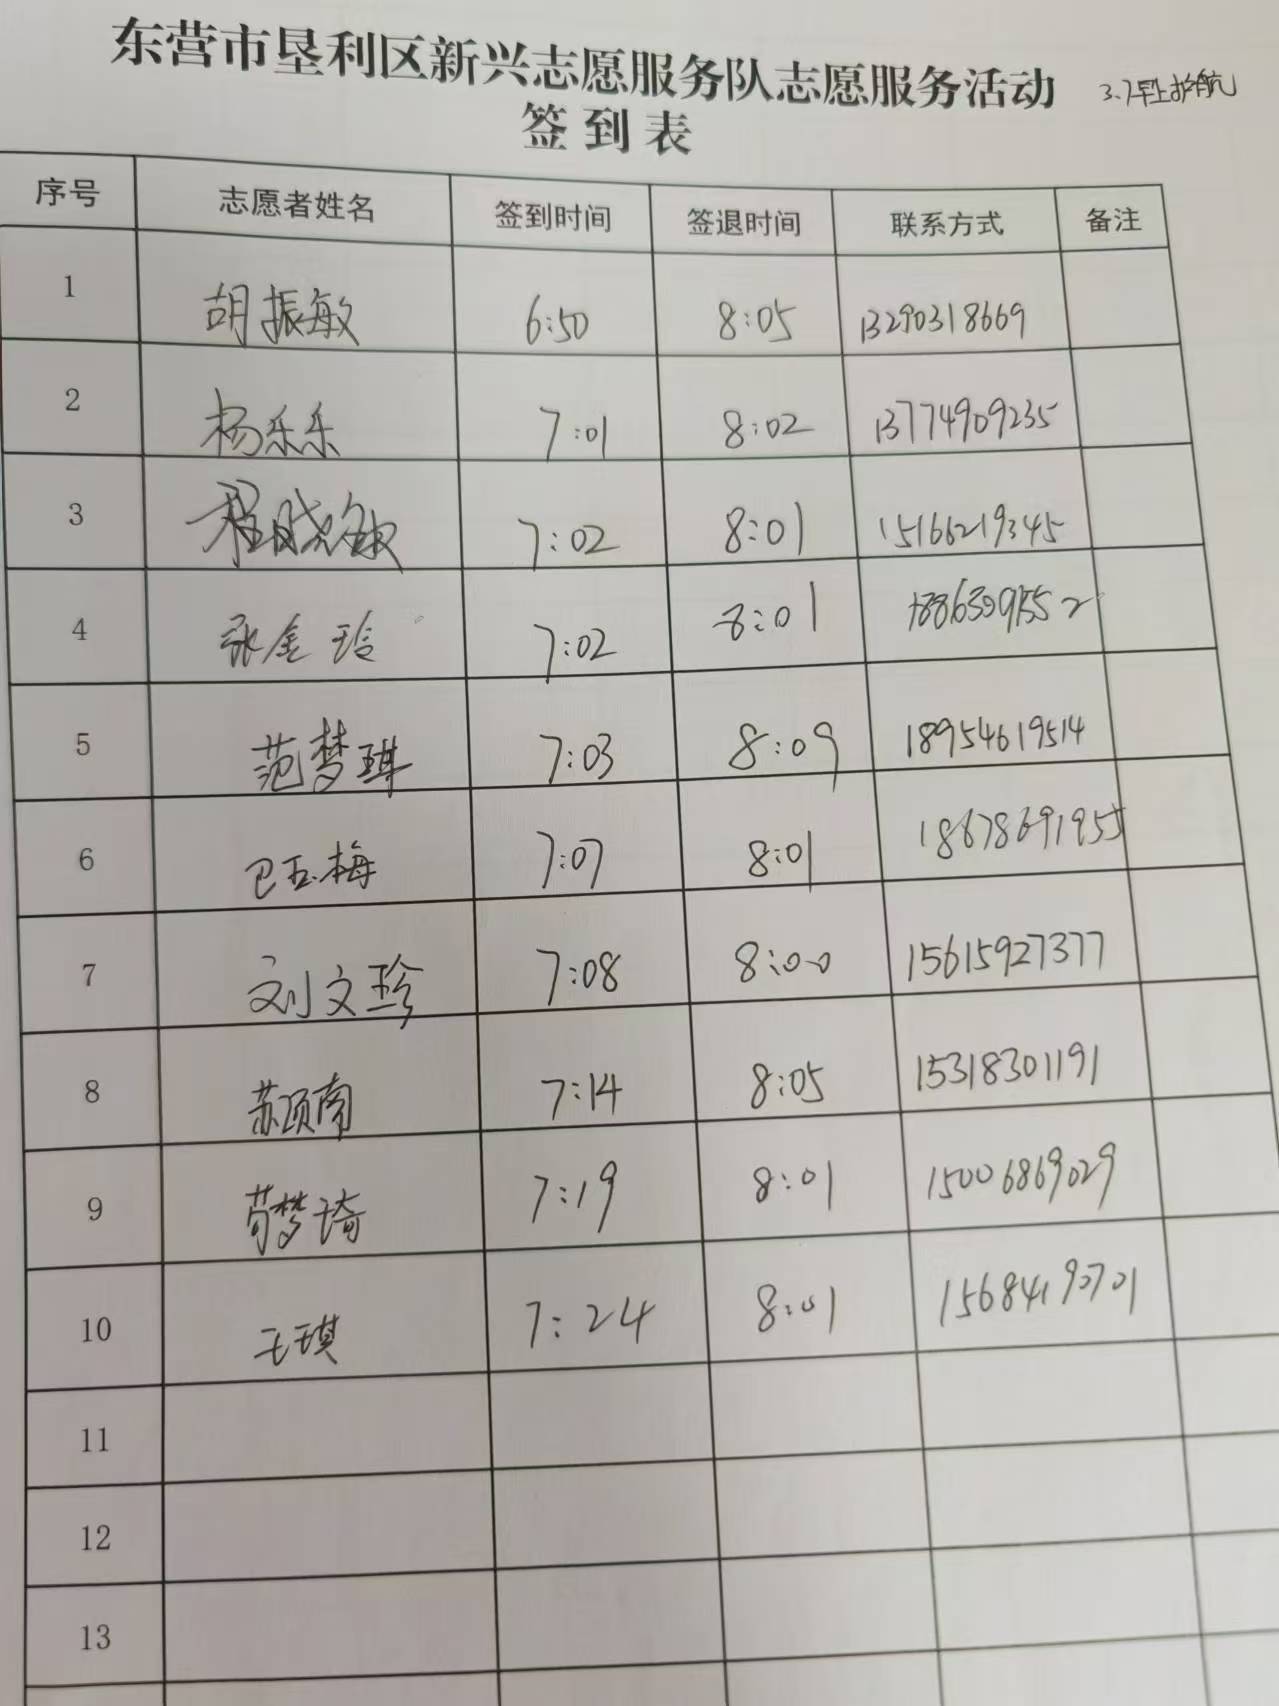 东营市垦利区新兴志愿服务队志愿服务活动 3.7早上护航
签到表
序号 志愿者姓名 签到时间 签退时间 联系方式 备注
1 胡振敏 6:50 8:05 13290318669
2 杨乐乐 7:01 8:02 13774909235
3 程晓敏 7:02 8:01 15166219345
4 张金玲 7:02 8:01
5 范梦琪 7:03 8:09 18954619514
6 巴玉梅 7:07 8:01 18678691955
7 刘文珍 7:08 8:00 15615927377
8 苏颐南 7:14 8:05 15318301191
9 苟梦琦 7:19 8:01 15006869029
10 王琪 7:24 8:01 15684190701
11
12
13